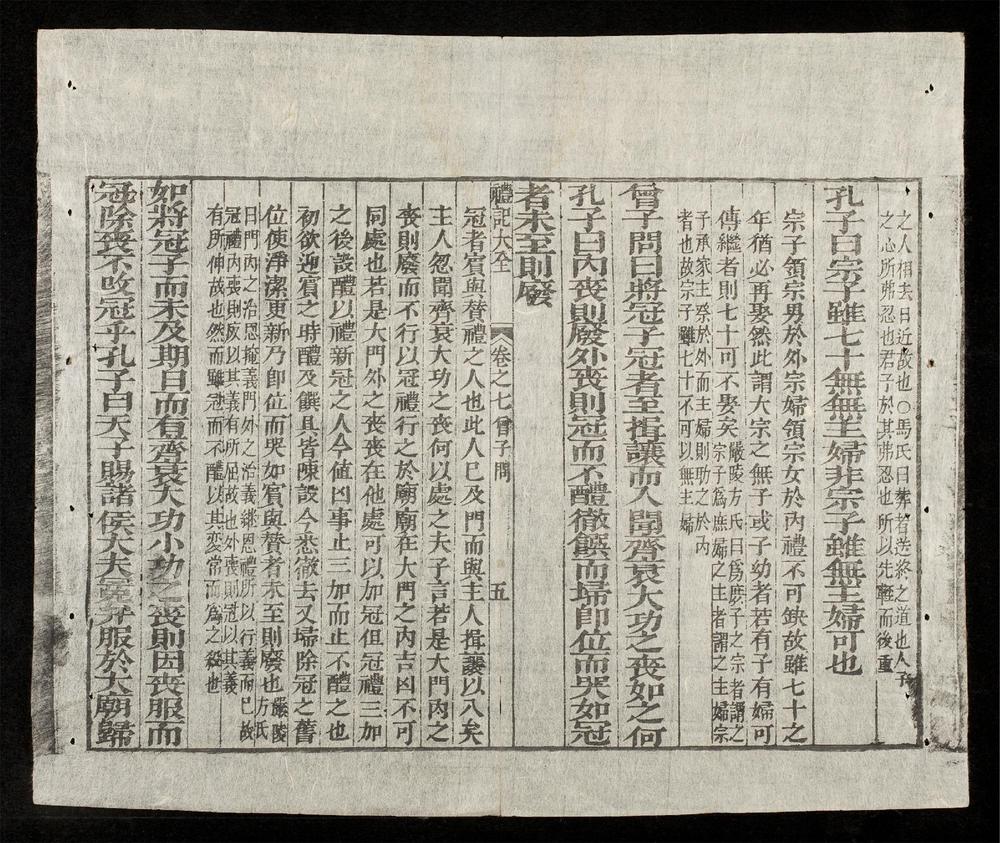 之人相去日近故也○馬氏曰葬者送終之道也人子
之心所弗忍也君子於其弗忍也所以先輕而後重
孔子曰宗子雖七十無無主婦非宗子雖無主婦可也
宗子領宗男於外宗婦領宗女於內禮不可缺故雖七十之
年猶必再娶然此謂大宗之無子或子幼者若有子有婦可
傳繼者則七十可不娶矣
嚴陵方氏曰爲庶子之宗者謂之
宗子爲庶婦之主者謂之主婦宗
子承家主祭於外而主婦則助之於內
者也故宗子雖七十不可以無主婦
曾子問曰將冠子冠者至揖讓而入聞齊衰大功之喪如之何
孔子曰內喪則廢外喪則冠而不醴徹饌而埽卽位而哭如冠
者未至則廢
禮記大全
卷之七曾子問
五
冠者賓與贊禮之人也此人已及門而與主人揖讓以入矣
主人忽聞齊衰大功之喪何以處之夫子言若是大門內之
喪則廢而不行以冠禮行之於廟廟在大門之內吉凶不可
同處也若是大門外之喪喪在他處可以加冠但冠禮三加
之後設醴以禮新冠之人今値凶事止三加而止不醴之也
初欲迎賓之時醴及饌具皆陳設今悉徹去又埽除冠之舊
位使淨潔更新乃卽位而哭如賓與贊者未至則廢也
嚴陵
方氏
曰門內之治恩掩義門外之治義繼恩禮所以行義而已故
冠禮內喪則廢以其義有所屈故也外喪則冠以其義
有所伸故也然而雖冠而不醴以其變常而爲之殺也
如將冠子而未及期日而有齊衰大功小功之喪則因喪服而
冠除喪不改冠乎孔子曰天子賜諸侯大夫冕弁服於大廟歸